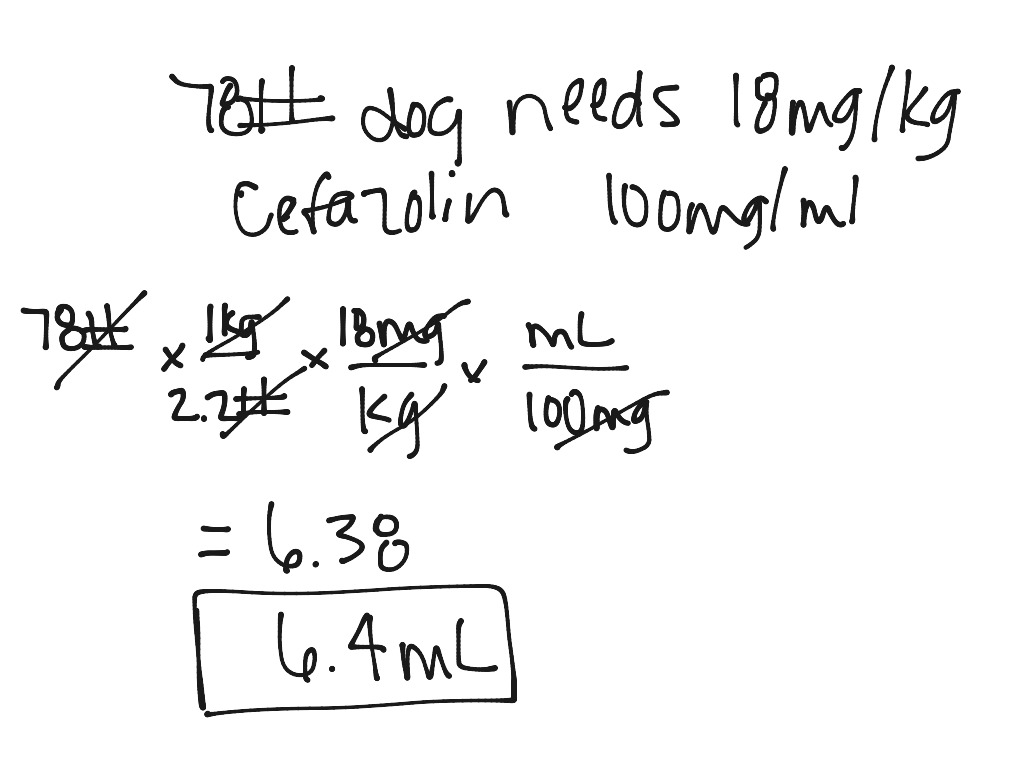 78# dog needs 18mg/kg
Cefazolin 100mg/ml
78# x 1kg/2.2# x 18mg/kg x mL/100mg
= 6.38
6.4mL